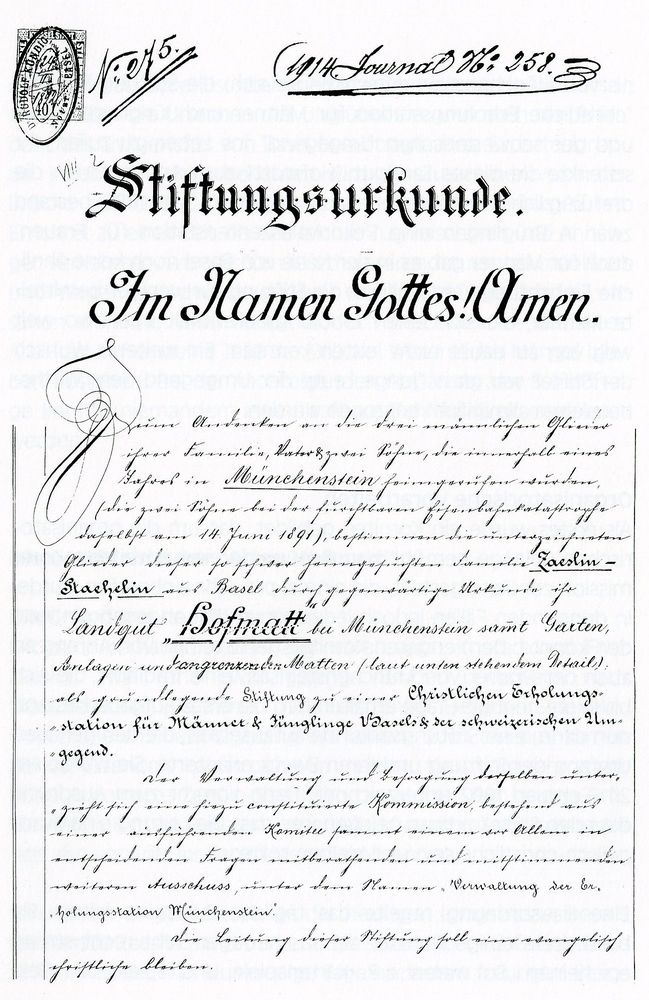 No. 275.
1914 Journal No. 258.
Stiftungsurkunde.
Im Namen Gottes! Amen.
Zum Andenken an die drei männlichen Glieder
ihrer Familie, Vater & zwei Söhne, die innerhalb eines
Jahres in Münchenstein heimgerufen wurden,
(die zwei Söhne bei der furchtbaren Eisenbahnkatastrophe
daselbst am 14. Juni 1891), bestimmen die unterzeichneten
Glieder dieser so schwer heimgesuchten Familie Zaeslin-
Staehelin aus Basel durch gegenwärtige Urkunde ihr
Landgut „Hofmatt“ bei Münchenstein samt Garten,
Anlagen und angrenzenden Matten (laut unten stehendem Detail).
als grundlegende Stiftung zu einer Christlichen Erholungs-
station für Männer & Jünglinge Basels & der schweizerischen Um-
gegend.
Der Verwaltung und Besorgung derselben unter-
zieht sich eine hiezu constituierte Kommission, bestehend aus
einer ausführenden Komitee sammt einem vor Allem in
entscheidenden Fragen mitberathenden und mitstimmenden
weiteren Ausschuss, unter dem Namen „Verwaltung der Er-
holungsstation Münchenstein“
Die Leitung dieser Stiftung soll eine evangelisch
christliche bleiben.